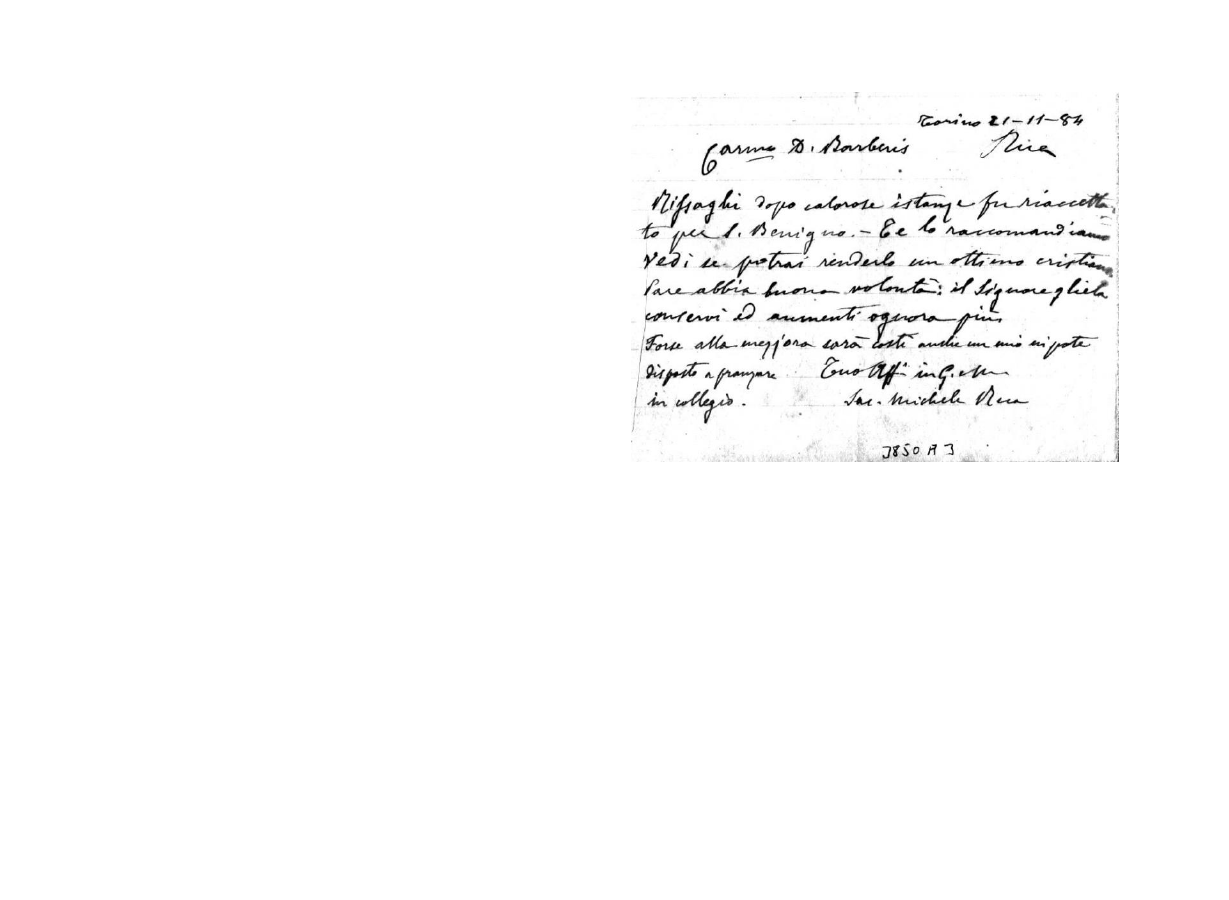 Torino 21-11-84
Carmo D. Barberis Rua
Rissaghi dopo calorose istanze fu riaccetta-
to per S. Benigno. - Te lo raccomandiamo
Vedi se potrai renderlo un ottimo cristiano
Pare abbia buona volontà: il Signore gliela
conservi ed aumenti ognora più.
Forse alla mezz'ora sarà costì anche un mio nipote
disposto a pranzare Tuo Aff in G. e M.
in collegio. Sac. Michele Rua
3850 A 3